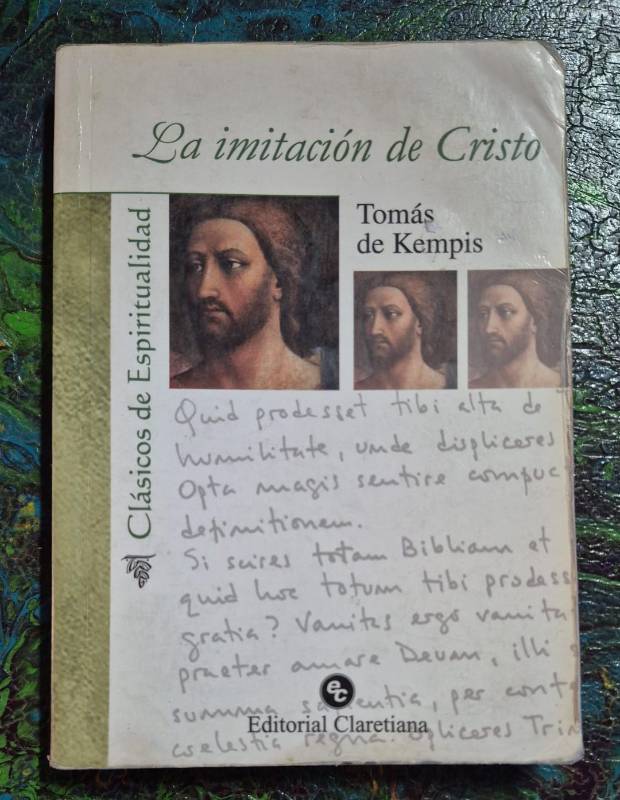 La imitación de Cristo
Tomás
de Kempis
Clásicos de Espiritualidad
Quid prodesset tibi alta de
humilitate, unde displiceres
Opta magis sentire compuc
definitionem.
Si scires totam Bibliam et
quid hoc totum tibi prodess
gratia? Vanitas ergo vanita
praeter amare Deum, illi s
summa sapientia, per conte
coelestia regna. Trin
ec
Editorial Claretiana